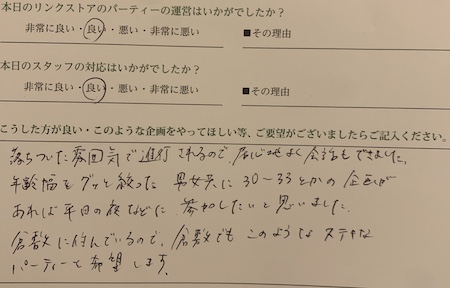 本日のリンクストアのパーティーの運営はいかがでしたか？
非常に良い・良い・悪い・非常に悪い ■その理由
本日のスタッフの対応はいかがでしたか？
非常に良い・良い・悪い・非常に悪い ■その理由
こうした方が良い・このような企画をやってほしい等、ご要望がございましたらご記入ください。
落ちついた雰囲気で進行されるので、居心地よく会話もできました。
年齢幅をグッと絞った 男女共に30〜33とかの企画が
あれば平日の夜などに 参加したいと思いました。
倉敷に住んでいるので、倉敷でも このようなステキな
パーティーを希望します。